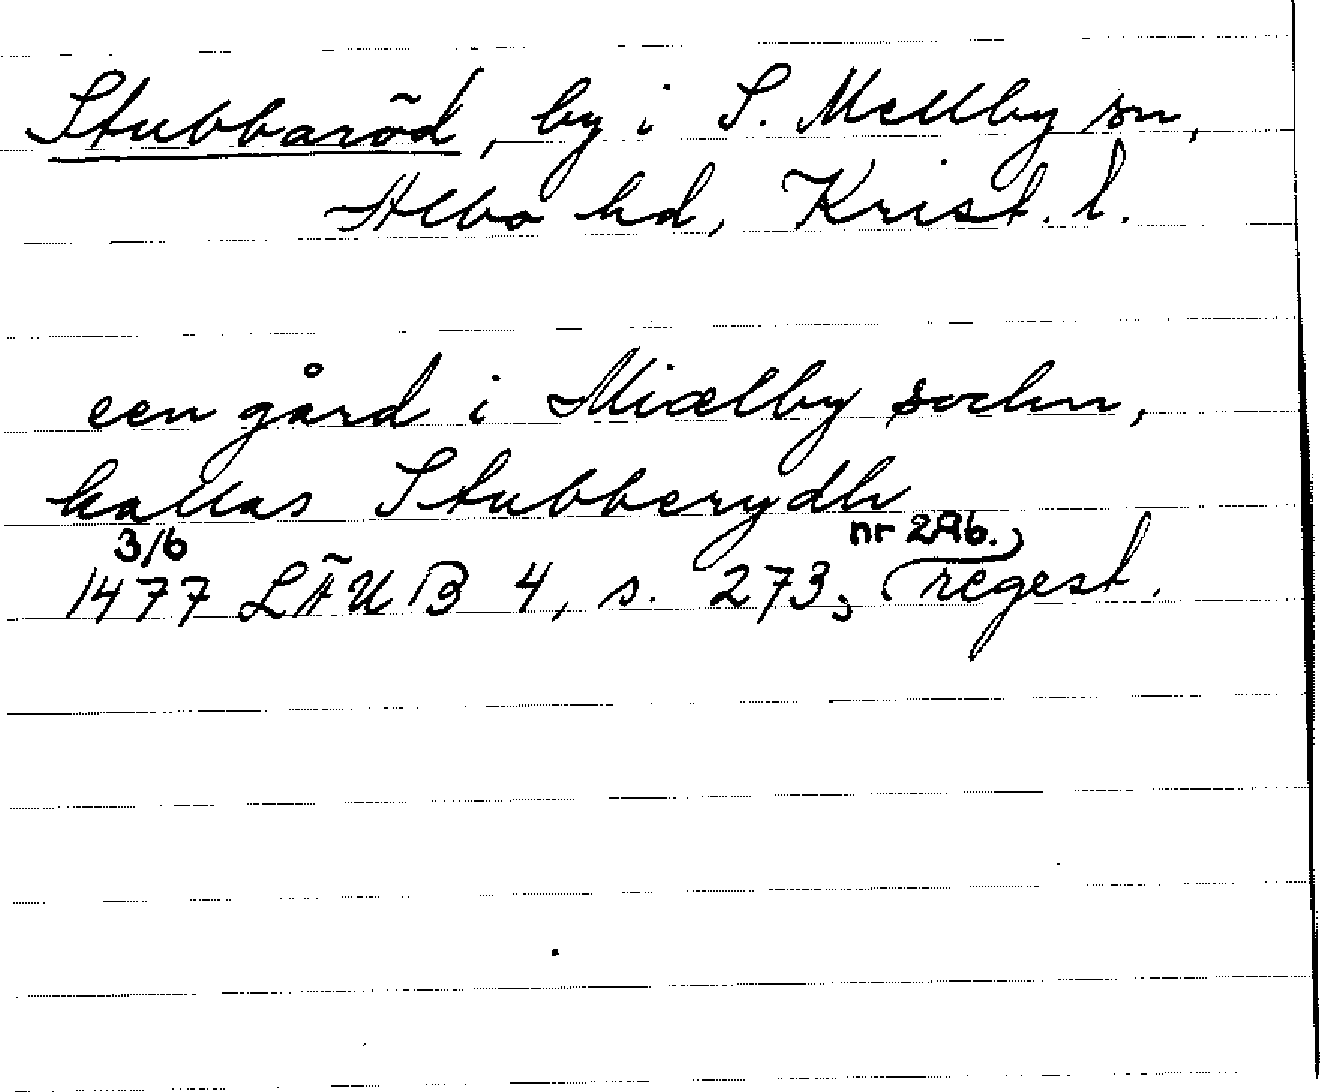 Stubbaröd, by i S. Mellby sn,
Albo hd, Krist. l.
een gård i Miælby sochn,
kallas Stubberydh
3/6 nr 2Ab.
1477 LÄUB 4, s. 273, regest.